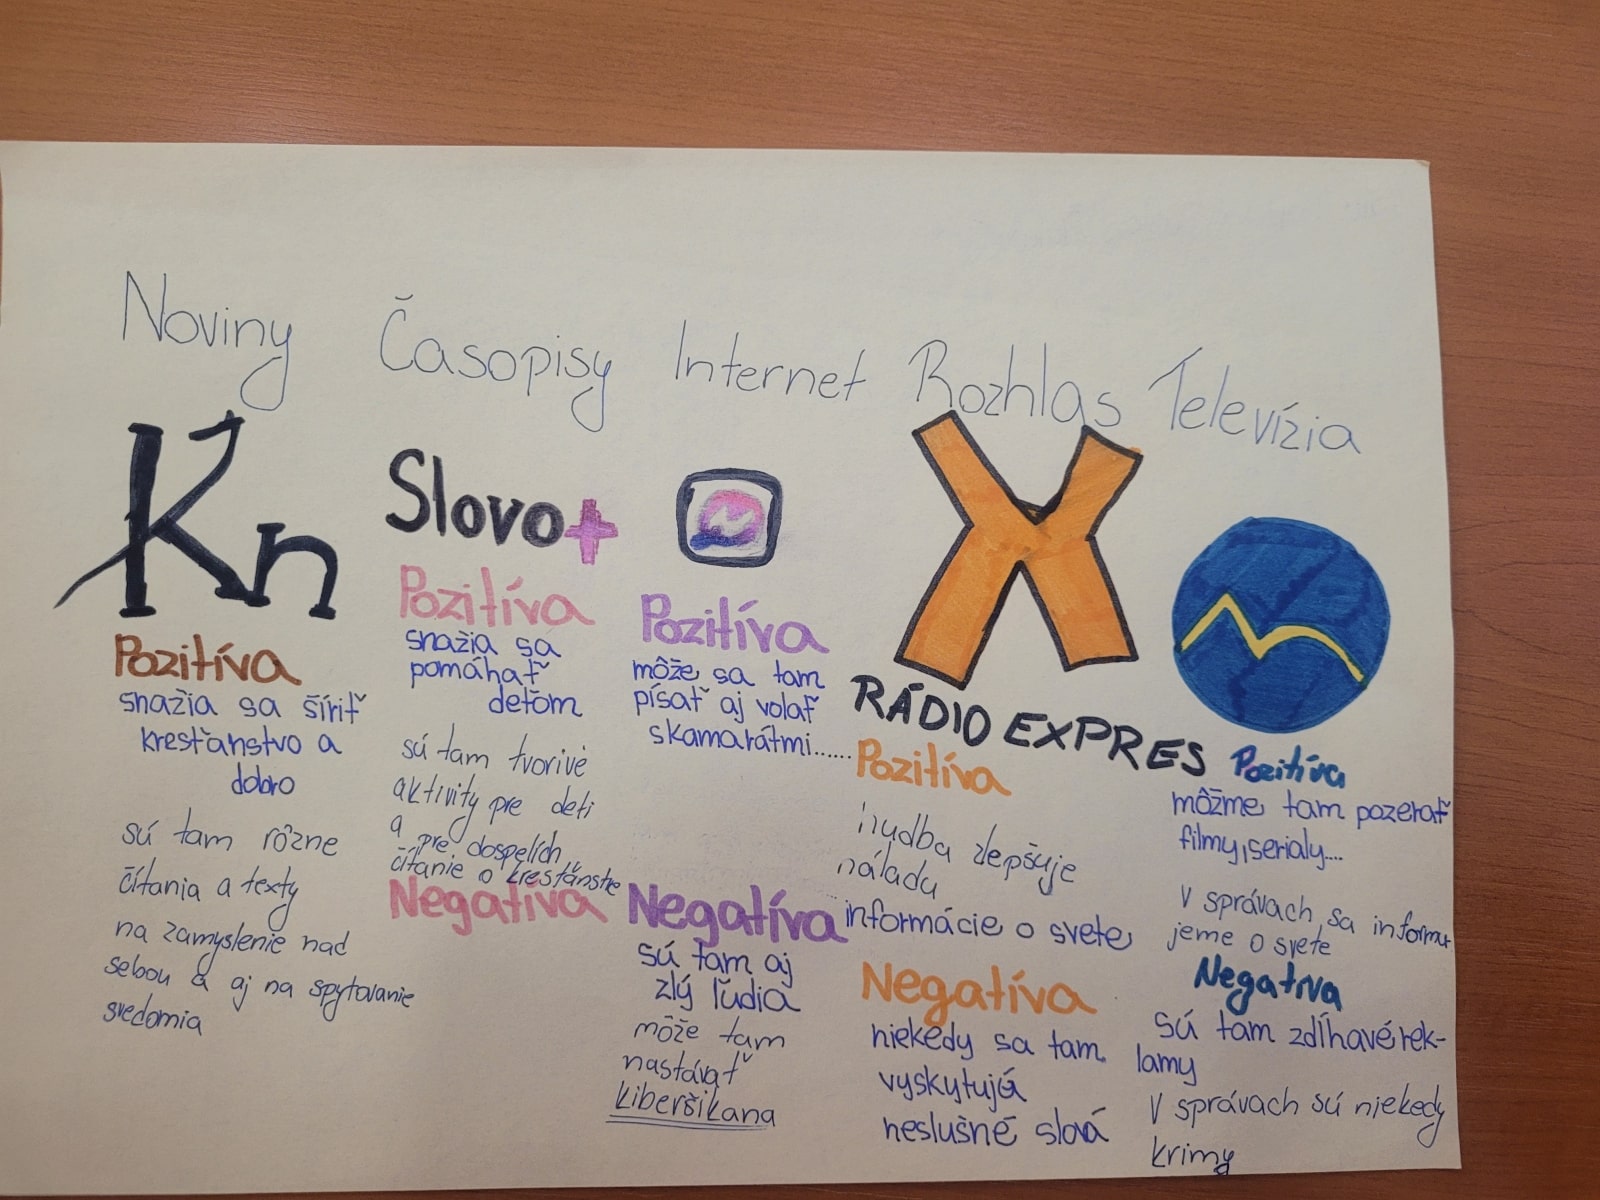 Noviny
Kn
Pozitíva
snažia sa šíriť
kresťanstvo a
dobro
sú tam rôzne
čítania a texty
na zamyslenie nad
sebou a aj na spytovanie
svedomia
Časopisy
Slovo+
Pozitíva
snažia sa
pomáhať
deťom
sú tam tvorivé
aktivity pre deti
a
pre dospelích
čítanie o kresťanstve
Negatíva
Internet
Pozitíva
môže sa tam
písať aj volať
skamarátmi......
Negatíva
sú tam aj
zlý ľudia
môže tam
nastávať
kiberšikana
Rozhlas
X
RÁDIO EXPRES
Pozitíva
hudba zlepšuje
náladu
informácie o svete
Negatíva
niekedy sa tam
vyskytujú
neslušné slová
Televízia
Pozitíva
môžme tam pozerať
filmy, serialy....
V správach sa informu
jeme o svete
Negatíva
sú tam zdĺhavé rek-
lamy
V správach sú niekedy
krimy